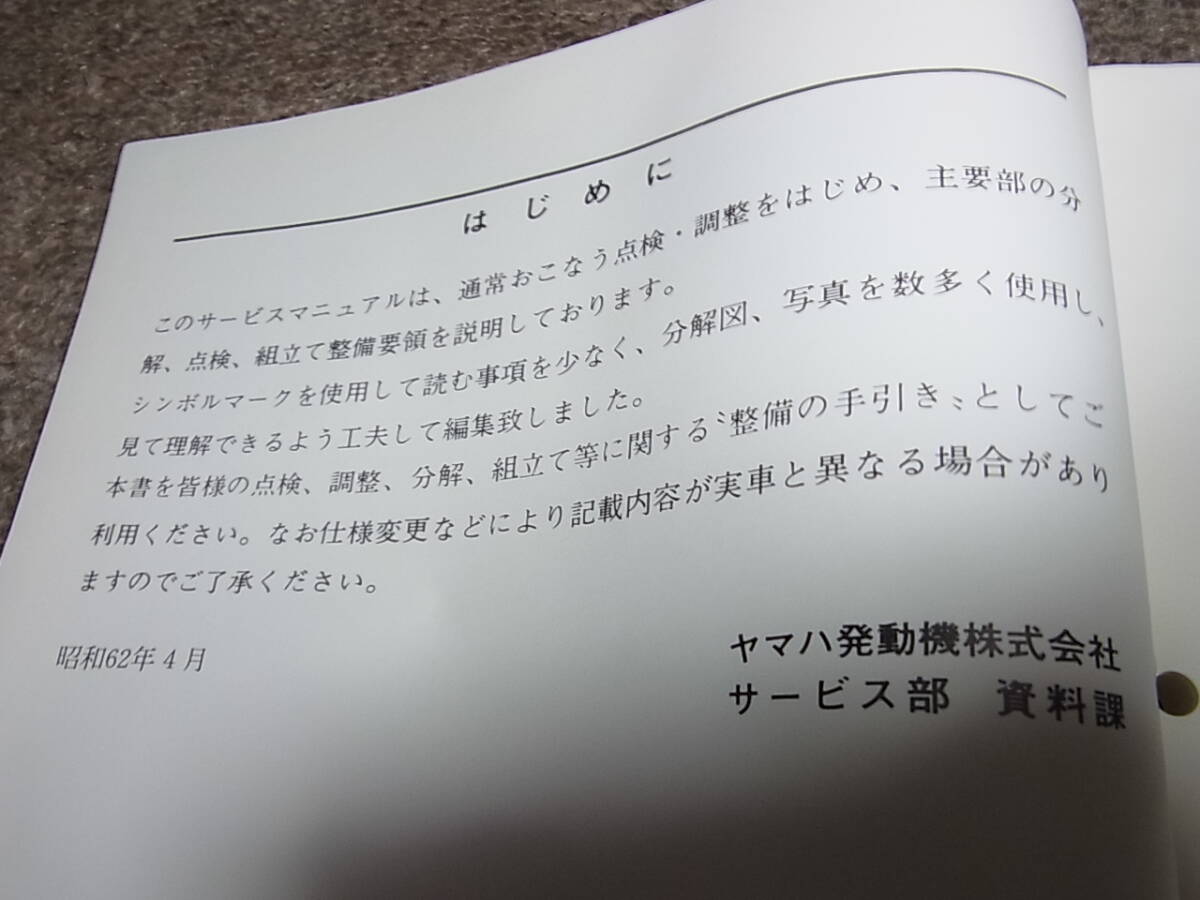 はじめに
このサービスマニュアルは、通常おこなう点検・調整をはじめ、主要部の分
解、点検、組立て整備要領を説明しております。
シンボルマークを使用して読む事項を少なく、分解図、写真を数多く使用し、
見て理解できるよう工夫して編集致しました。
本書を皆様の点検、調整、分解、組立て等に関する〝整備の手引き〟としてご
利用ください。なお仕様変更などにより記載内容が実車と異なる場合があり
ますのでご了承ください。
昭和62年4月
ヤマハ発動機株式会社
サービス部 資料課